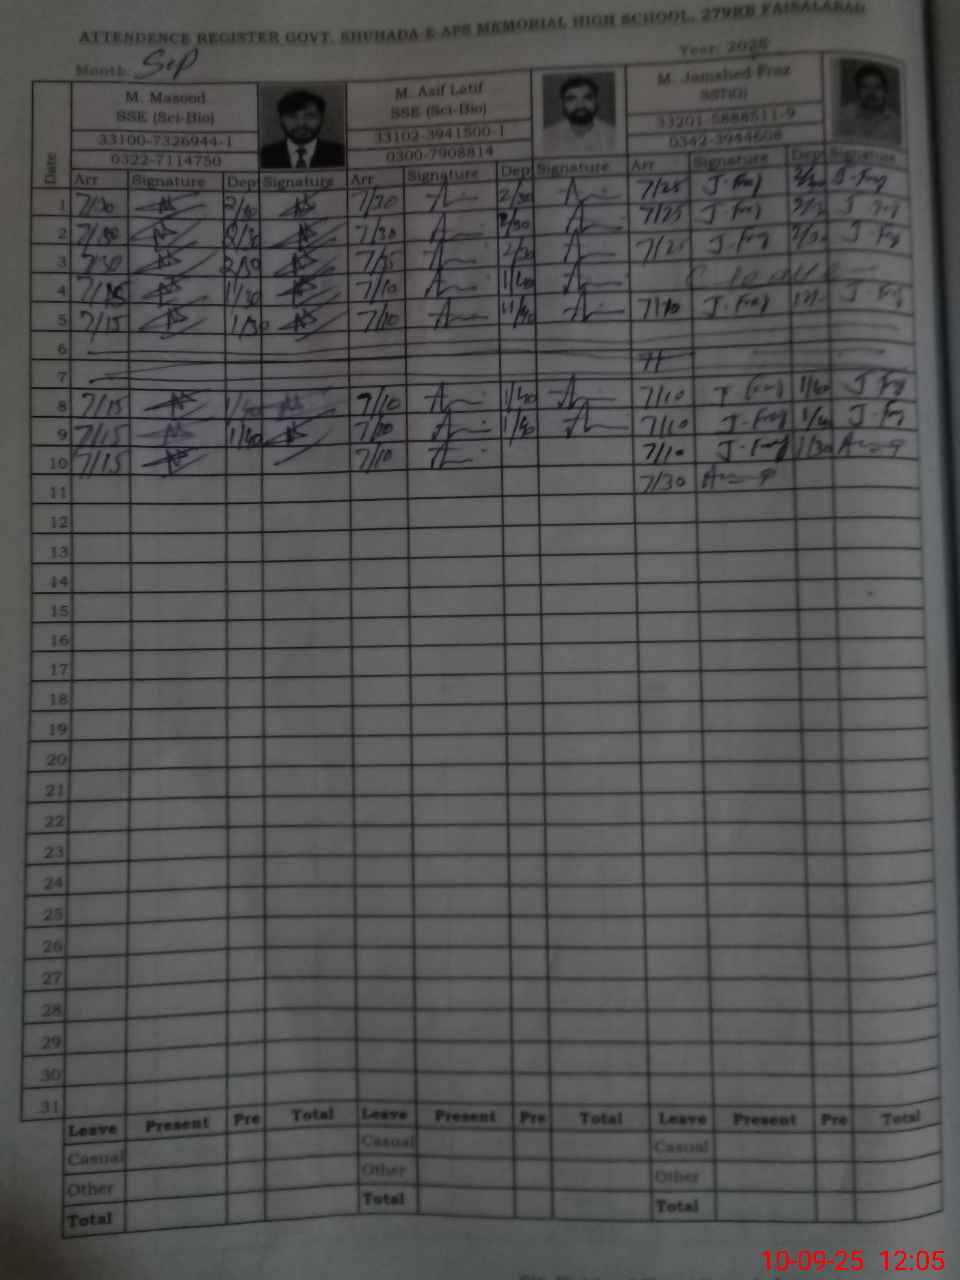 ATTENDENCE REGISTER GOVT. SHUHADA E APS MEMORIAL HIGH SCHOOL, 279RB FAISALABAD
Month: Sep Year: 2025
M. Masood M. Asif Latif M. Jamshed Fraz
SSE (Sci-Bio) SSE (Sci-Bio) SSTIGI
33100-7326944-1 33102-3941500-1 33201-5888511-9
0322-7114750 0300-7908814 0342-3944608
Date Arr Signature Dep Signature Arr Signature Dep Signature Arr Signature Dep Signature
1 7/30 2/30 7/30 2/30 7/25 J. Fraz J. Fraz
2 7/30 2/30 7/30 2/30 7/25 J. Fraz J. Fraz
3 7/30 2/30 2/30 7/25 J. Fraz 2/30 J. Fraz
4 7/15 1/30 7/10 1/40
5 7/15 1/30 7/10 7/10 J. Fraz J. Fraz
6
7
8 7/15 1/40 7/10 1/40 7/10 J. Fraz 1/40 J. Fraz
9 7/15 1/40 7/10 1/40 7/10 J. Fraz 1/40 J. Fraz
10 7/15 7/10 7/10 J. Fraz 1/30
11 7/30
12
13
14
15
16
17
18
19
20
21
22
23
24
25
26
27
28
29
30
31
Leave Present Pre Total Leave Present Pre Total Leave Present Pre Total
Casual Casual Casual
Other Other Other
Total Total Total
10-09-25 12:05